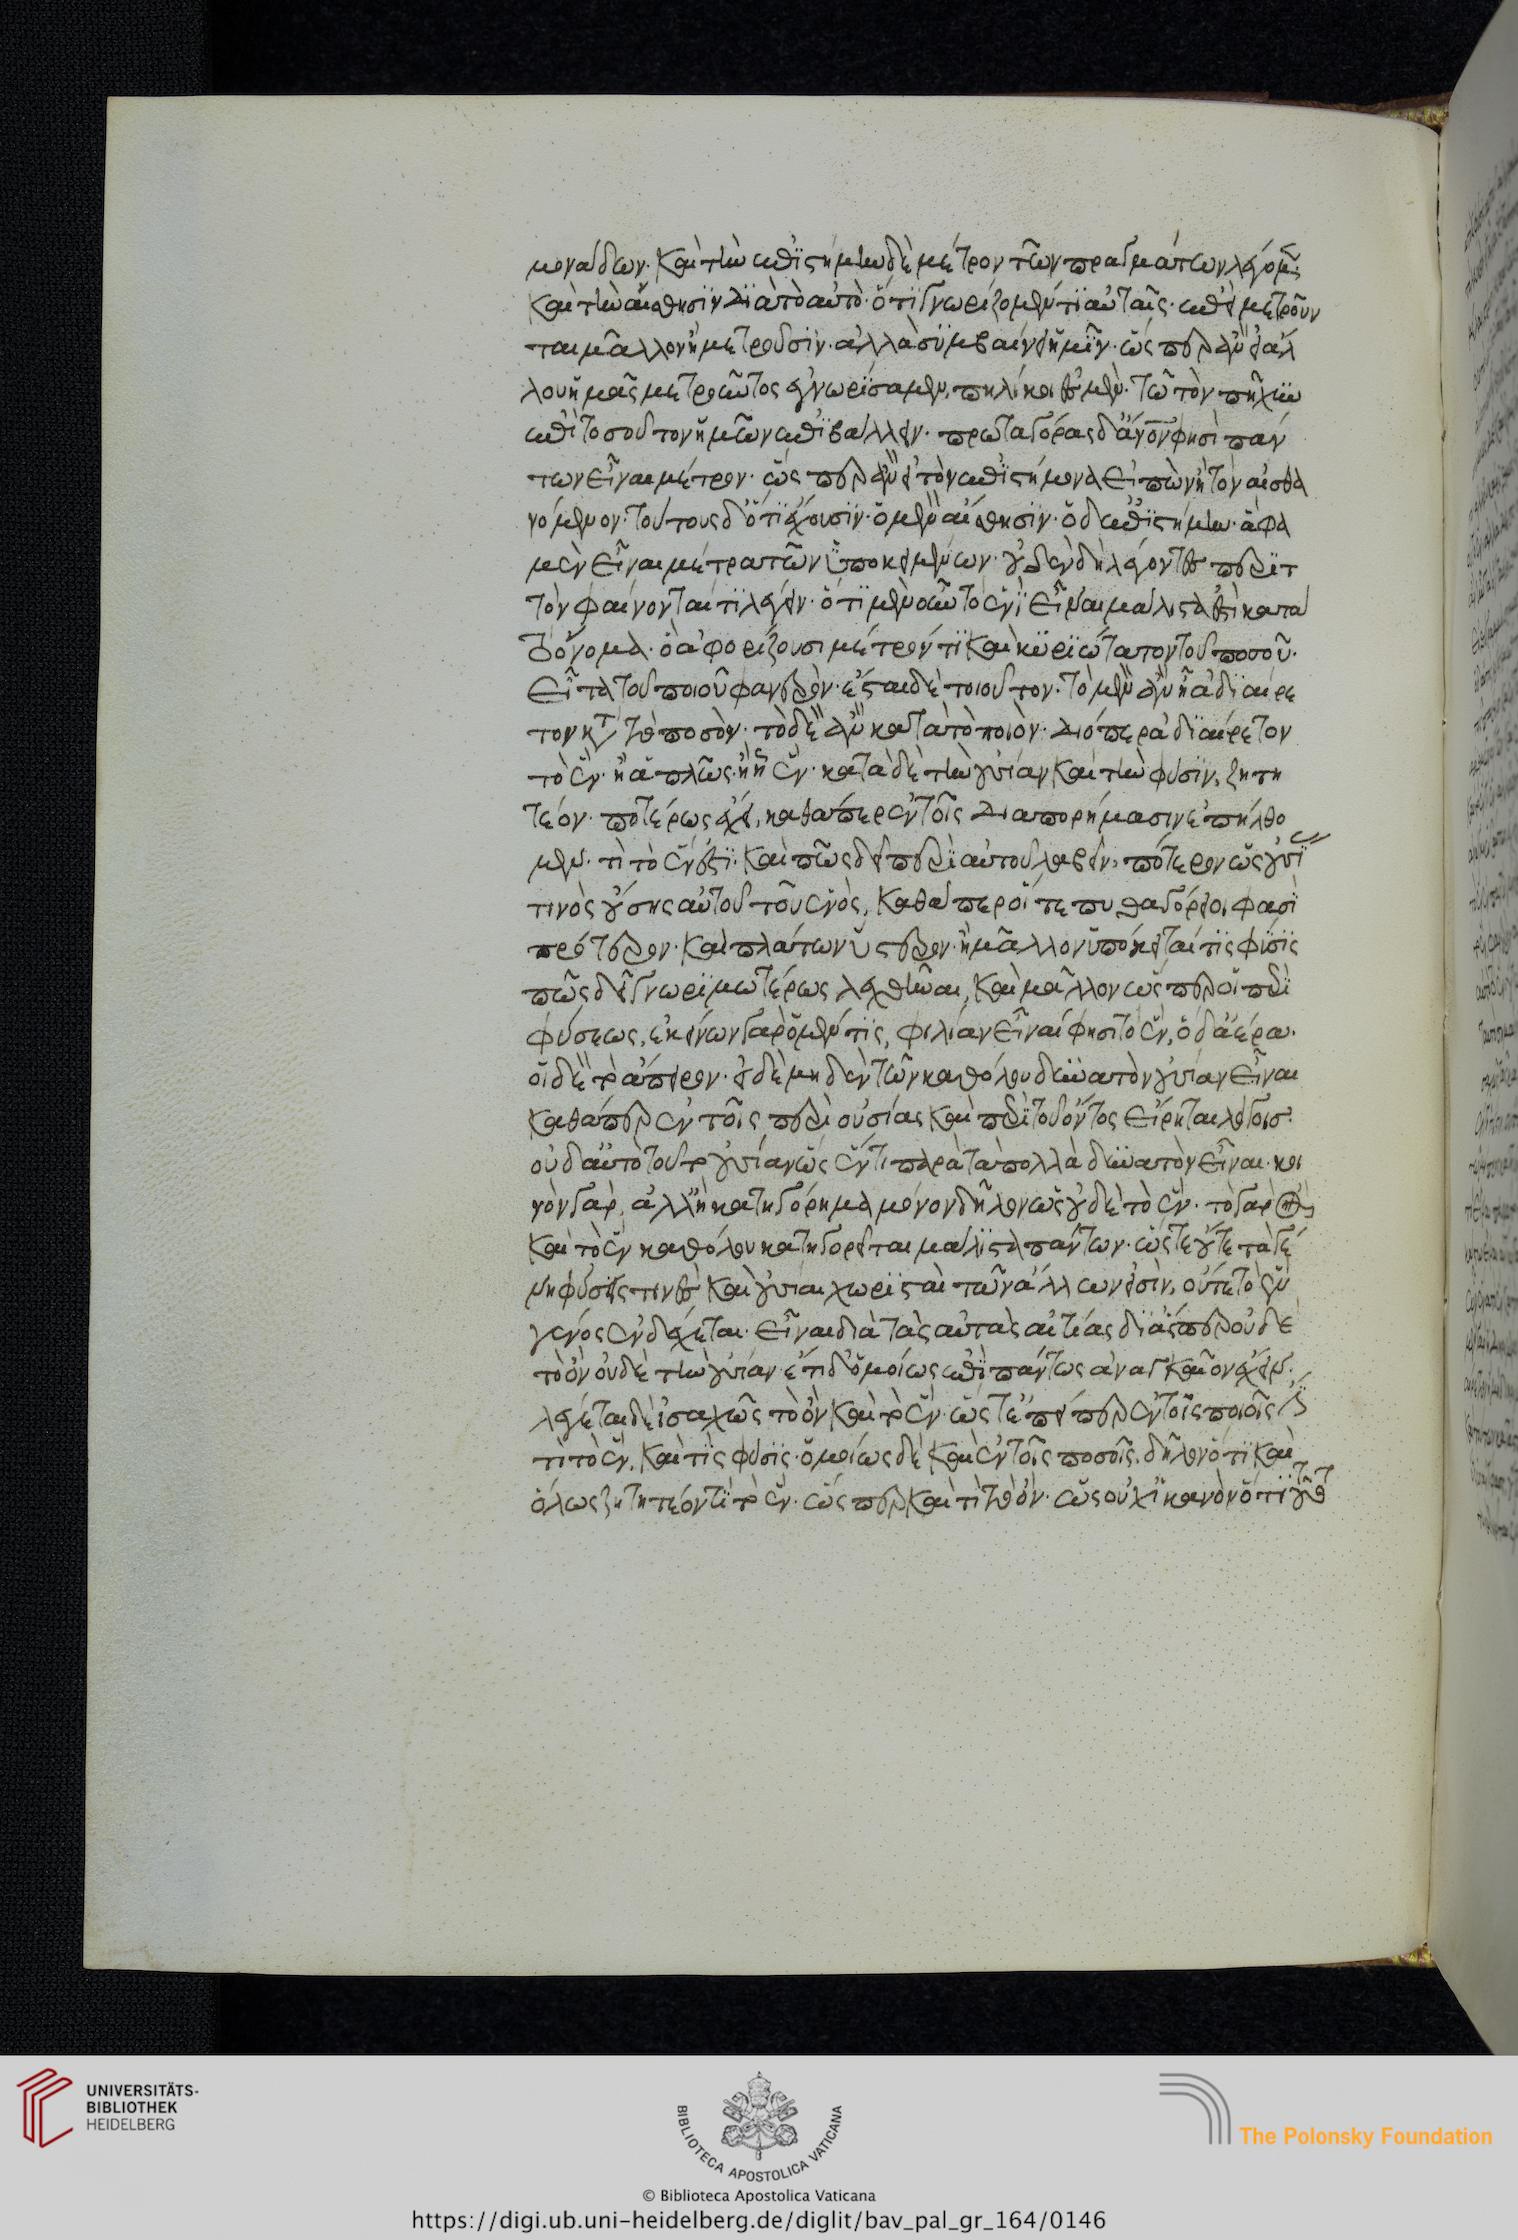 μονάδων· καὶ τὴν ἐπϊστήμην δὲ μέτρον τῶν πραγμάτων λέγομεν
καὶ τὴν αἴσθησϊν διὰ τὸ αὐτὸ· ὅτϊ γνωρίζομέν τϊ αὐταῖς· ἐπεὶ μετροῦν
ται μᾶλλον ἢ μετροῦσϊν· ἀλλὰ συμβαίνει ἡμῖν· ὥσπερ ἂν εἰ ἄλ
λου ἡμᾶς μετροῦντος ἐγνωρίσαμεν, πηλίκοι ἐσμὲν· τῶ τὸν πῆχϋν
ἐπὶ τοσοῦτον ἡμῶν ἐπϊβάλλειν· πρωταγόρας δ' ἄνον φησὶ πάν
των εἶναι μέτρον· ὥσπερ ἂν εἰ τὸν ἐπϊστήμονα εἰπὼν ἢ τὸν αἰσθα
νόμενον· τούτους δ' ὅτϊ ἔχουσϊν· ὁ μὲν αἴσθησϊν· ὁ δ' ἐπϊστήμην· ἅ φα
μὲν εἶναι μέτρα τῶν ὑποκειμένων· οὐδὲν δὴ λέγοντες περϊτ
τὸν φαίνονταί τϊ λέγειν· ὅτϊ μὲν οὖν τὸ ἑνϊ εἶναι μάλιστα ἐστὶ κατὰ
τὸ ὄνομα· ὃ ἀφορίζουσι μέτρόν τϊ καὶ κϋρϊώτατον τοῦ ποσοῦ·
εἶτα τοῦ ποιοῦ φανερὸν· ἔσται δὲ τοιοῦτον· τὸ μὲν ἂν ἦ ἀδϊαίρε
τον κατὰ τὸ ποσὸν· τὸ δὲ ἂν κατὰ τὸ ποιὸν· διόπερ ἀδϊαίρετον
τὸ ἓν· ἢ ἁπλῶς· ἢ ἧ ἓν· κατὰ δὲ τὴν οὐσίαν καὶ τὴν φύσϊν, ζητη
τέον· ποτέρως ἔχει, καθάπερ ἐν τοῖς διαπορήμασιν ἐπήλθο
μεν· τὶ τὸ ἕν ἐστϊ· καὶ πῶς δεῖ περϊ αὐτοῦ λαβεῖν, πότερον ὡς οὐσϊ
τινὸς οὔσης αὐτοῦ τοῦ ἑνὸς, καθάπερ οἵ τε πυθαγόρειοι φασὶ
πρότερον· καὶ πλάτων ὕστερον· ἢ μᾶλλον ὑπόκειταί τϊς φύσϊς
πῶς δεῖ γνωρϊμωτέρως λεχθῆναι, καὶ μᾶλλον ὥσπερ οἱ περὶ
φύσεως, ἐκείνων γὰρ ὁ μέν τϊς, φιλίαν εἶναί φησι τὸ ἓν, ὁ δ' ἀέρα·
οἱ δὲ τὸ ἄπειρον· εἰ δὲ μηδὲν τῶν καθόλου δϋνατὸν οὐσίαν εἶναι
καθάπερ ἐν τοῖς περὶ οὐσίας καὶ περὶ τοῦ ὄντος εἴρηται λόγοισ·
οὐδ' αὐτὸ τοῦτο οὐσίαν ὡς ἕν τι παρὰ τὰ πολλὰ δϋνατὸν εἶναι· κοι
νὸν γὰρ, ἀλλ' ἢ κατηγόρημα μόνον δῆλον ὡς οὐδὲ τὸ ἓν· τὸ γὰρ ὂν
καὶ τὸ ἓν καθόλου κατηγορεῖται μάλϊστα πάντων· ὥστε οὔτε τὰ γέ
νη φύσεις τινὲς καὶ οὐσίαι χωρϊσταὶ τῶν ἄλλων εἰσὶν, οὔτε τὸ ἓν
γένος ἐνδέχεται εἶναι διὰ τὰς αὐτὰς αἰτίας δϊ' ἅσπερ οὐδὲ
τὸ ὂν οὐδὲ τὴν οὐσίαν· ἔτι δ' ὁμοίως ἐπϊ πάντως ἀναγκαῖον ἔχειν·
λέγεται δὲ ἰσαχῶς τὸ ὂν καὶ τὸ ἓν· ὥστ' ἐπείπερ ἐν τοῖς ποιοῖς ἐστϊ
τὶ τὸ ἓν, καὶ τὶς φύσϊς· ὁμοίως δὲ καὶ ἐν τοῖς ποσοῖς, δῆλον ὅτϊ καὶ
ὅλως ζητητέον τϊ τὸ ἓν· ὥσπερ καὶ τὶ τὸ ὂν· ὡς οὐχ ἱκανὸν ὅτϊ τοῦτο
UNIVERSITÄTS-
BIBLIOTHEK
HEIDELBERG
BIBLIOTECA APOSTOLICA VATICANA
The Polonsky Foundation
© Biblioteca Apostolica Vaticana
https://digi.ub.uni-heidelberg.de/diglit/bav_pal_gr_164/0146